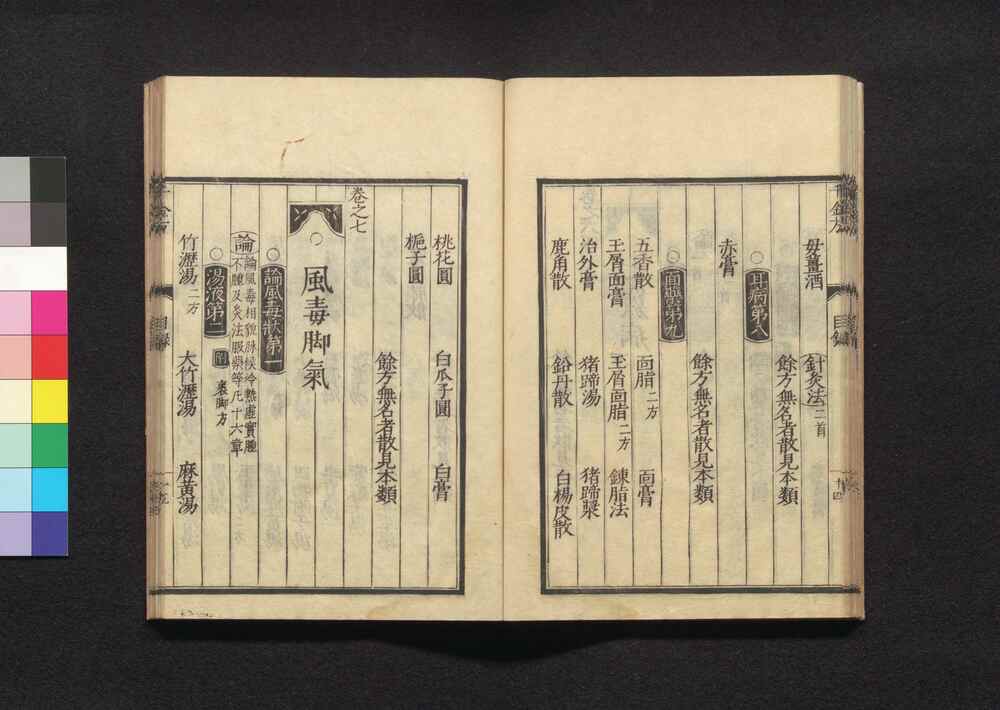 毋薑酒　針灸法二首
餘方無名者散見本類
耳病第八
赤膏
餘方無名者散見本類
面藥第九
五香散　面脂二方　面膏
玉屑面膏　玉屑面脂二方　錬脂法
治外膏　猪蹄湯　猪蹄漿
鹿角散　鉛丹散　白楊皮散
桃花圓　白瓜子圓　白膏
梔子圓
餘方無名者散見本類
卷之七
風毒脚氣
論風毒狀第一
論　論風毒相貌脉候冷熱虛實腫
不腫及灸法服藥等凡十六章
湯液第二　附　裹脚方
竹瀝湯二方　大竹瀝湯　麻黃湯